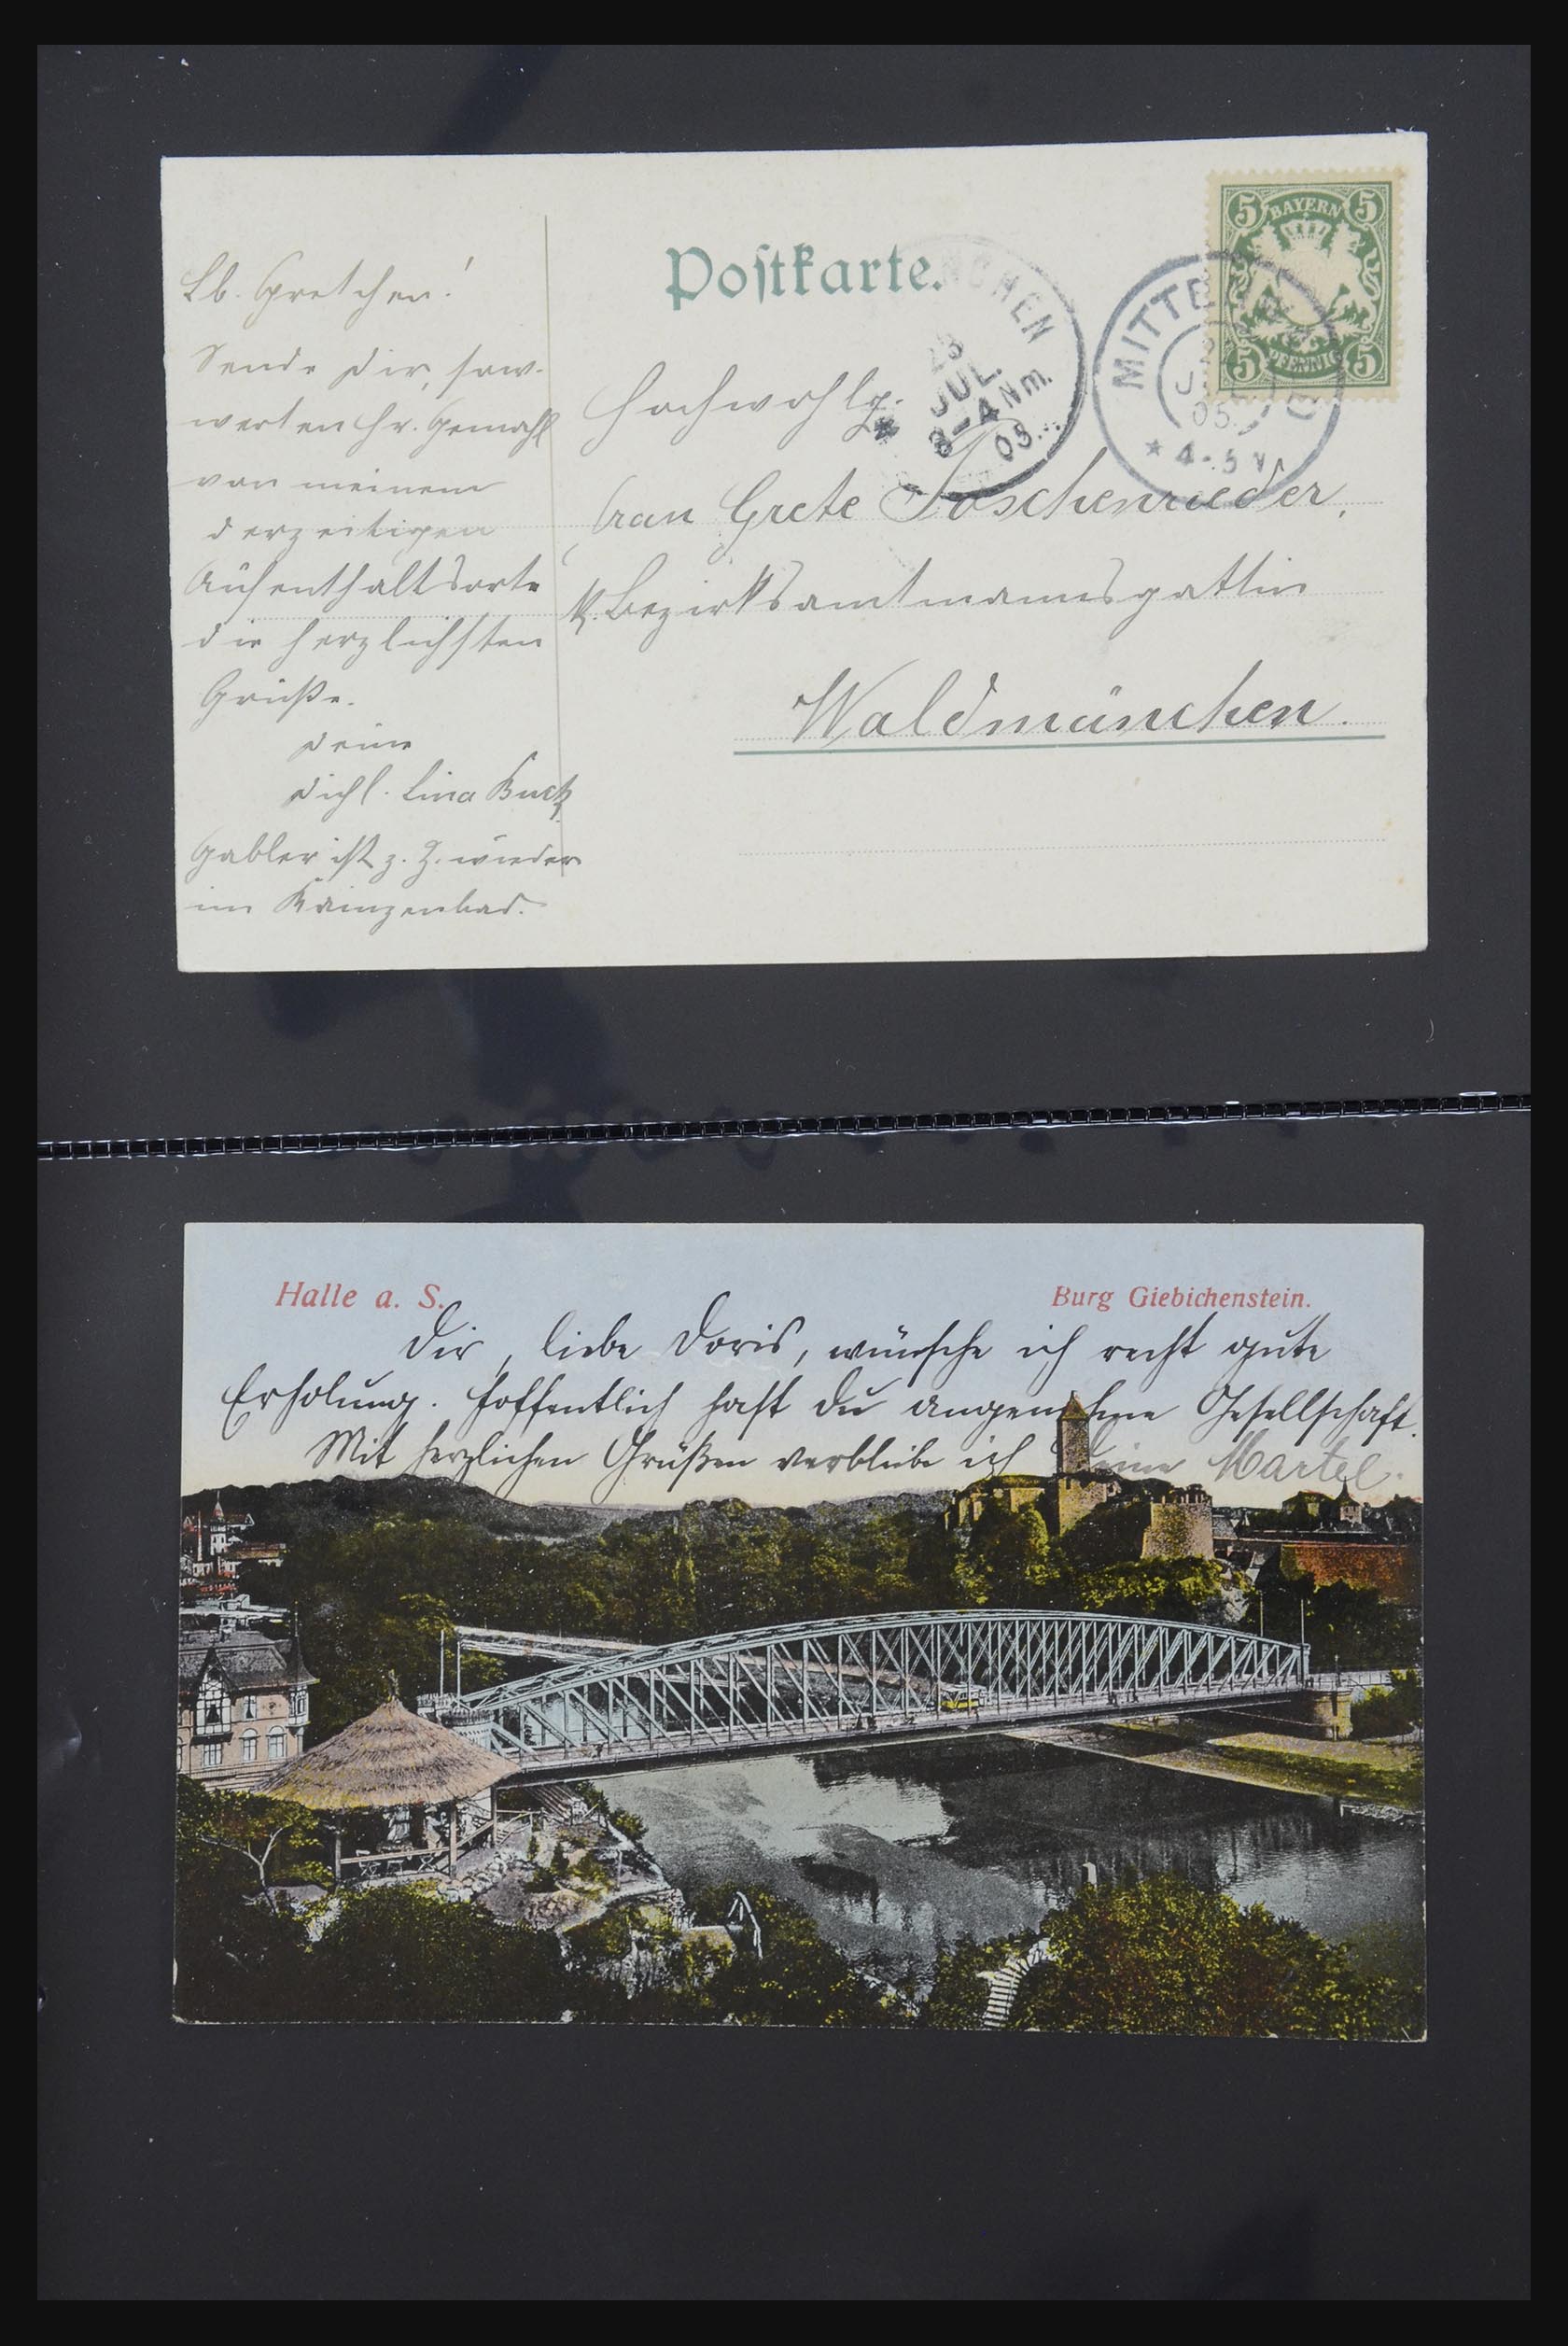 Postkarte.
5 BAYERN 5
5 PFENNIG 5
MITTE
05
* 4-5 V
NCHEN
JUL.
3-4 Nm.
05
Lb. Gretchen!
Sende Dir, sow.
werten Hr. Gemahl
von meinem
derzeitigen
Aufenthaltsorte
die herzlichsten
Grüße.
Deine
Lina
Gabler ist z. Z. wieder
im Kainzenbad.
Hochwohlg.
Frau Grete Poschenrieder,
K. Bezirksamtmannsgattin
Waldmünchen.
Halle a. S.
Burg Giebichenstein.
Dir, liebe Doris, wünsche ich recht gute
Erholung. Hoffentlich hast Du angenehme Gesellschaft.
Mit herzlichen Grüßen verbleibe ich Deine Martel.